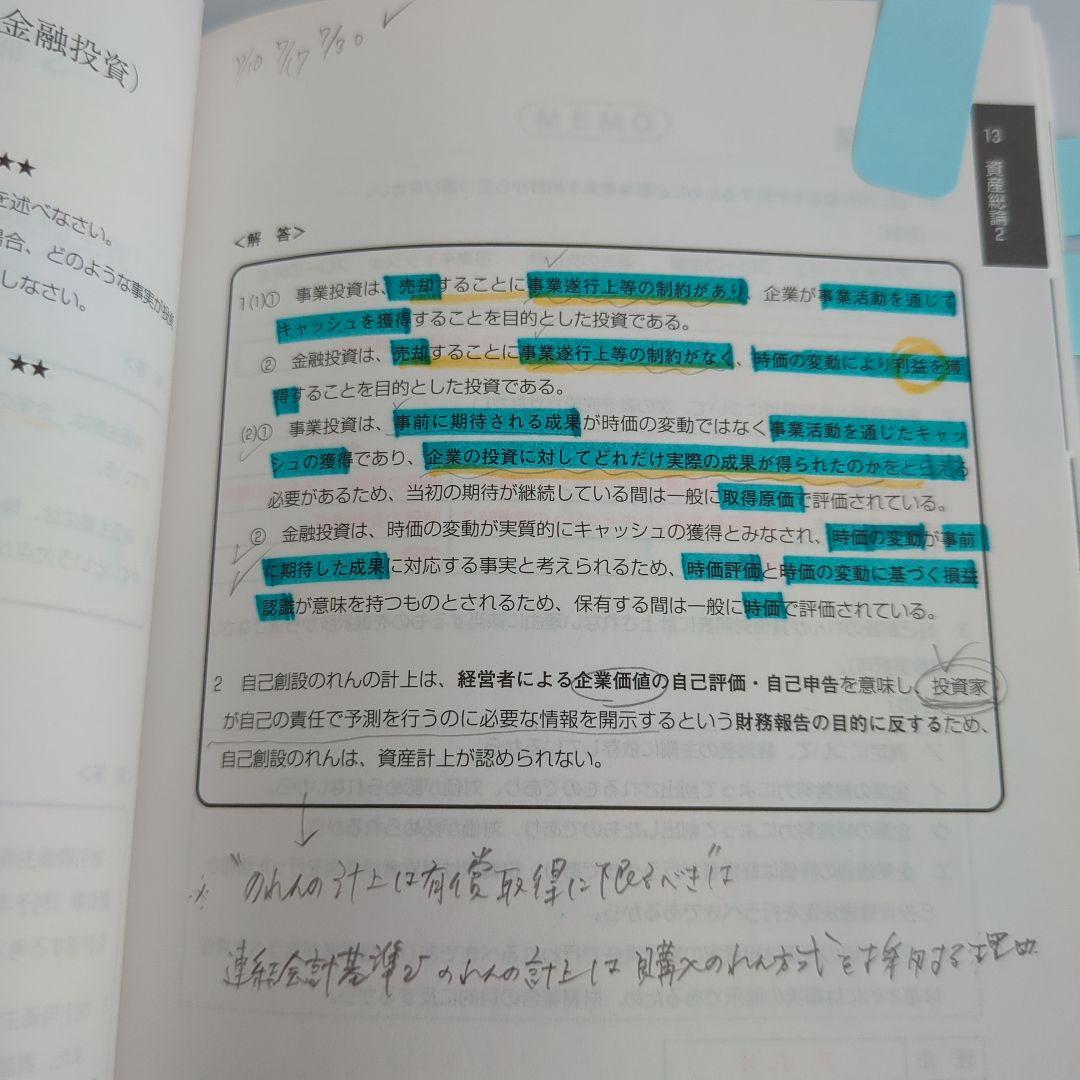 金融投資)
★★
を述べなさい。
場合、どのような事実が
しなさい。
★★
7/10 7/17 7/30
MEMO
13 資産総論2
<解 答>
1(1)① 事業投資は、売却することに事業遂行上等の制約があり、企業が事業活動を通じて
キャッシュを獲得することを目的とした投資である。
② 金融投資は、売却することに事業遂行上等の制約がなく、時価の変動により利益を獲
得することを目的とした投資である。
(2)① 事業投資は、事前に期待される成果が時価の変動ではなく事業活動を通じたキャッ
シュの獲得であり、企業の投資に対してどれだけ実際の成果が得られたのかをとらえる
必要があるため、当初の期待が継続している間は一般に取得原価で評価されている。
② 金融投資は、時価の変動が実質的にキャッシュの獲得とみなされ、時価の変動が事前
に期待した成果に対応する事実と考えられるため、時価評価と時価の変動に基づく損益
認識が意味を持つものとされるため、保有する間は一般に時価で評価されている。
2 自己創設のれんの計上は、経営者による企業価値の自己評価・自己申告を意味し、投資家
が自己の責任で予測を行うのに必要な情報を開示するという財務報告の目的に反するため、
自己創設のれんは、資産計上が認められない。
※ "のれんの計上は有償取得に限るべき"は
連結会計基準でのれんの計上は「購入のれん方式」を採用する理由